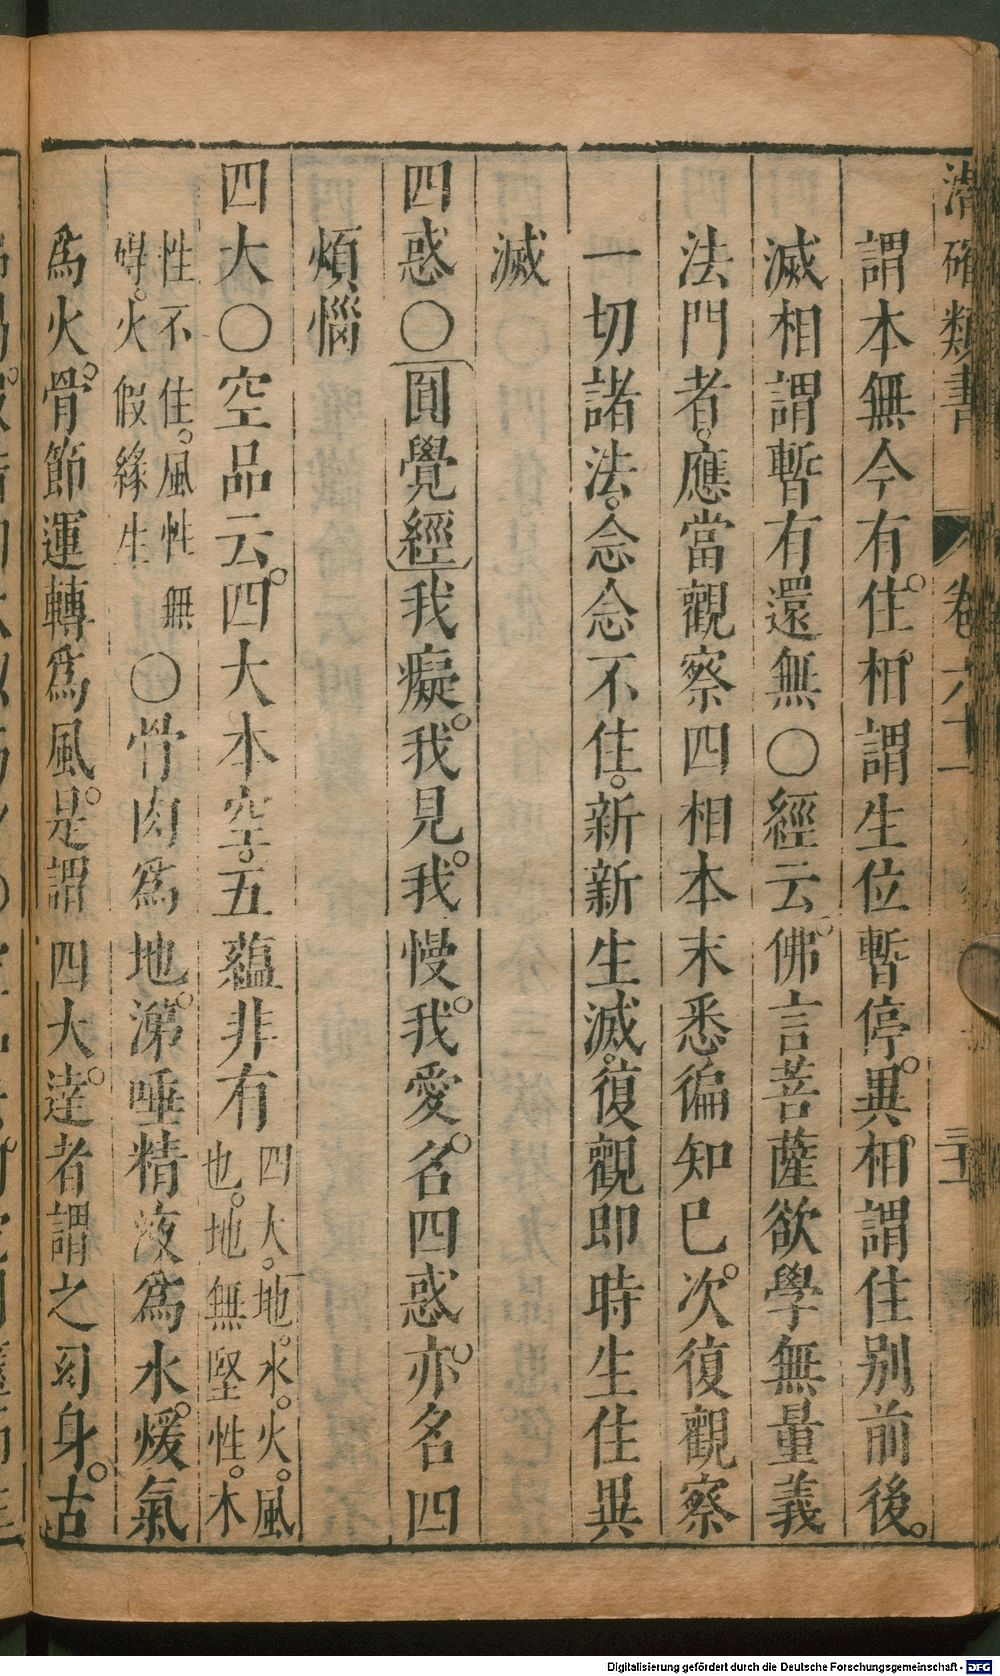 潛確類書 卷六十一 三十五
謂本無今有。住相謂生位暫停。異相謂住别前後。
滅相謂暫有還無〇經云。佛言菩薩欲學無量義
法門者。應當觀察四相本末悉徧知已。次復觀察
一切諸法。念念不住。新新生滅。復觀即時生住異
滅
四惑〇圓覺經我癡。我見。我慢。我愛。名四惑。亦名四
煩惱
四大〇空品云。四大本空。五蘊非有四大。地。水。火。風
也。地無堅性。水
性不住。風性無
碍。火假緣生〇骨肉爲地。涕唾精液爲水。煖氣
爲火。骨節運轉爲風。是謂四大。達者謂之幻身。古
Digitalisierung gefördert durch die Deutsche Forschungsgemeinschaft - DFG